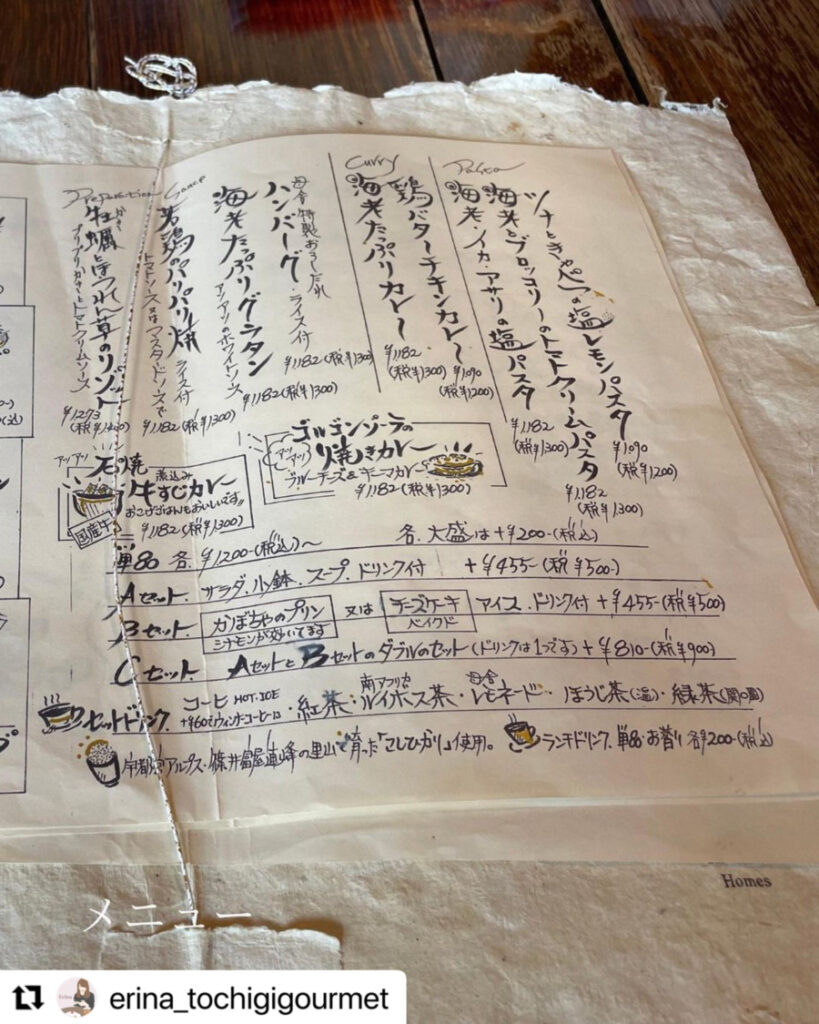 Pasta
ツナときゃべつの塩レモンパスタ
¥1,090
(税¥1200)
海老とブロッコリーのトマトクリームパスタ
¥1,182
(税¥1300)
海老・イカ・アサリの塩パスタ
¥1,182
(税¥1300)
Curry
鶏バターチキンカレー
¥1,090
(税¥1200)
海老たっぷりカレー
¥1,182
(税¥1300)
特製おろしだれ
ハンバーグ・ライス付
¥1,182(税¥1300)
海老たっぷりグラタン
アツアツのホワイトソース
¥1,182(税¥1300)
若鶏のパリパリ焼 ライス付
トマトソース又はマスタードソースで
¥1,182(税¥1300)
牡蠣とほうれん草のリゾット
プリプリかきとトマトクリームソース
¥1,273
ゴルゴンゾーラの
アツアツ 焼きカレー
ブルーチーズ&キーマカレー
¥1,182(税¥1300)
アツアツ 石焼
煮込み
牛すじカレー
おこげごはんもおいしいです
国産牛
¥1,182(税¥1300)
単品 各 ¥1200-(税込)~ 各.大盛は+¥200-(税込)
Aセット. サラダ.小鉢.スープ.ドリンク付 +¥455-(税¥500-)
Bセット. かぼちゃのプリン 又は チーズケーキ アイス.ドリンク付 +¥455-(税¥500)
シナモンが効いてます ベイクド
Cセット AセットとBセットのダブルのセット(ドリンクは1つです)+¥810-(税¥900)
セットドリンク コーヒー HOT.ICE ・紅茶・南アフリカ ルイボス茶・レモネード・ほうじ茶(温)・緑茶
宇都宮アルプス・篠井富屋連峰の里山で育った「こしひかり」使用。 ランチドリンク.単品・お替り 各¥200-(税込)
Homes
メニュー
erina_tochigigourmet